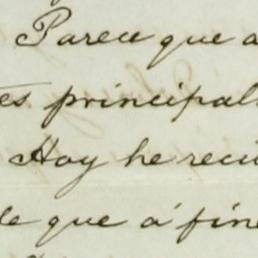 Parece que a
es principal
Hoy he reci
de que á fine